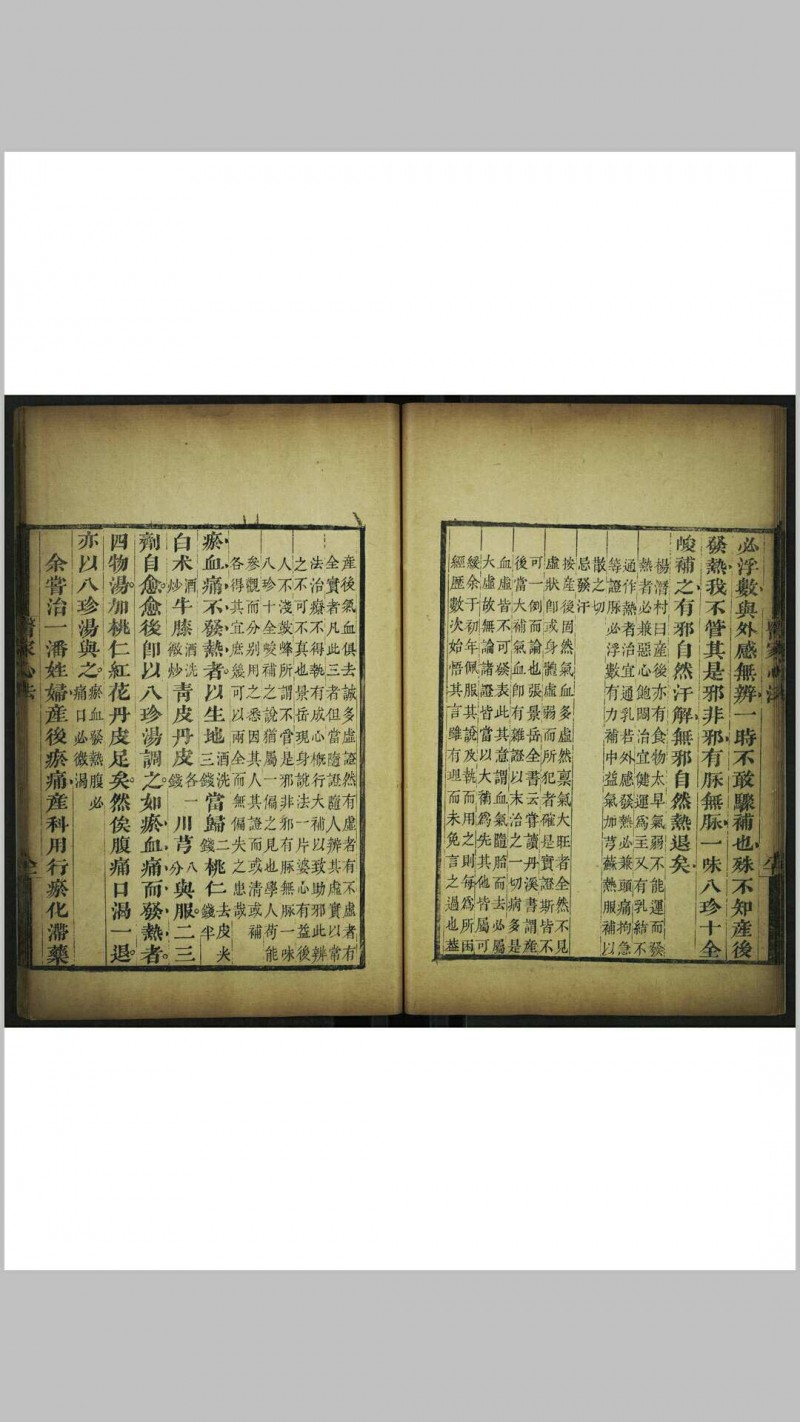 必浮數與外感無辨一時不敢驟補也殊不知產後
發熱我不管其是邪非邪有脈無脈一味八珍十全
峻補之有邪自然汗解無邪自然熱退矣
楊潛村曰產後亦有食物太早氣弱不能運而發
熱者必兼惡心飽悶治宜健運爲主又有乳結不
通作熱者治宜通乳若外感發熱必兼頭痛拘急
等證脈必浮數有力補中益氣加芎蘇熱服補以
散之切
忌發汗
按產後固然氣血多虛然稟氣大旺者全然不見
虛狀卽或身體虛弱而所犯者確是實證斯皆不
可一例而論也張景岳全書云嘗讀丹溪書謂產
後當大補氣血卽有雜證以末治之一切病多是
血虛皆不可發表此其意謂血氣隨胎而去必屬
大虛故無論諸證皆當以大補爲先其他皆屬可
緩余于初年佩服其說及執而用之則每爲所困
經歷數次始悟其言雖有理而未免言之過也蓋
產後氣血俱去誠多虛證然有虛者有不虛者有
全實者凡此三者但當隨證隨人辨其虛實以常
法治療不得執有成心概行大補以致助邪此辨
之不可不真也景岳現身說法一片婆心有益後
人不淺故蜂所謂不管是邪非邪有脈無脈一味
八珍十全變補之說猶屬一偏之見也學人苟能
參觀而分別用之悉因其人其證而或清或補
各得其宜庶幾可以兩全而無偏失之患哉
瘀血痛不發熱者以生地酒洗三錢當歸二錢桃仁去皮尖錢半
白术酒炒牛膝酒洗微炒靑皮丹皮各一錢川芎八分與服二三
劑自愈愈後卽以八珍湯調之如瘀血痛而發熱者
四物湯加桃仁紅花丹皮足矣然俟腹痛口渴一退
亦以八珍湯與之瘀血發熱腹必痛口必微渴
余嘗治一潘姓婦產後瘀痛產科用行瘀化滯藥
醫家心法